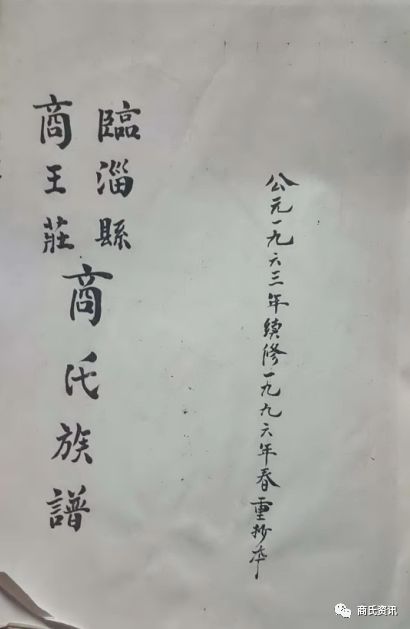 公元一九六三年續修一九九六年春重抄本
臨淄縣
商王莊
商氏族譜
商氏资讯